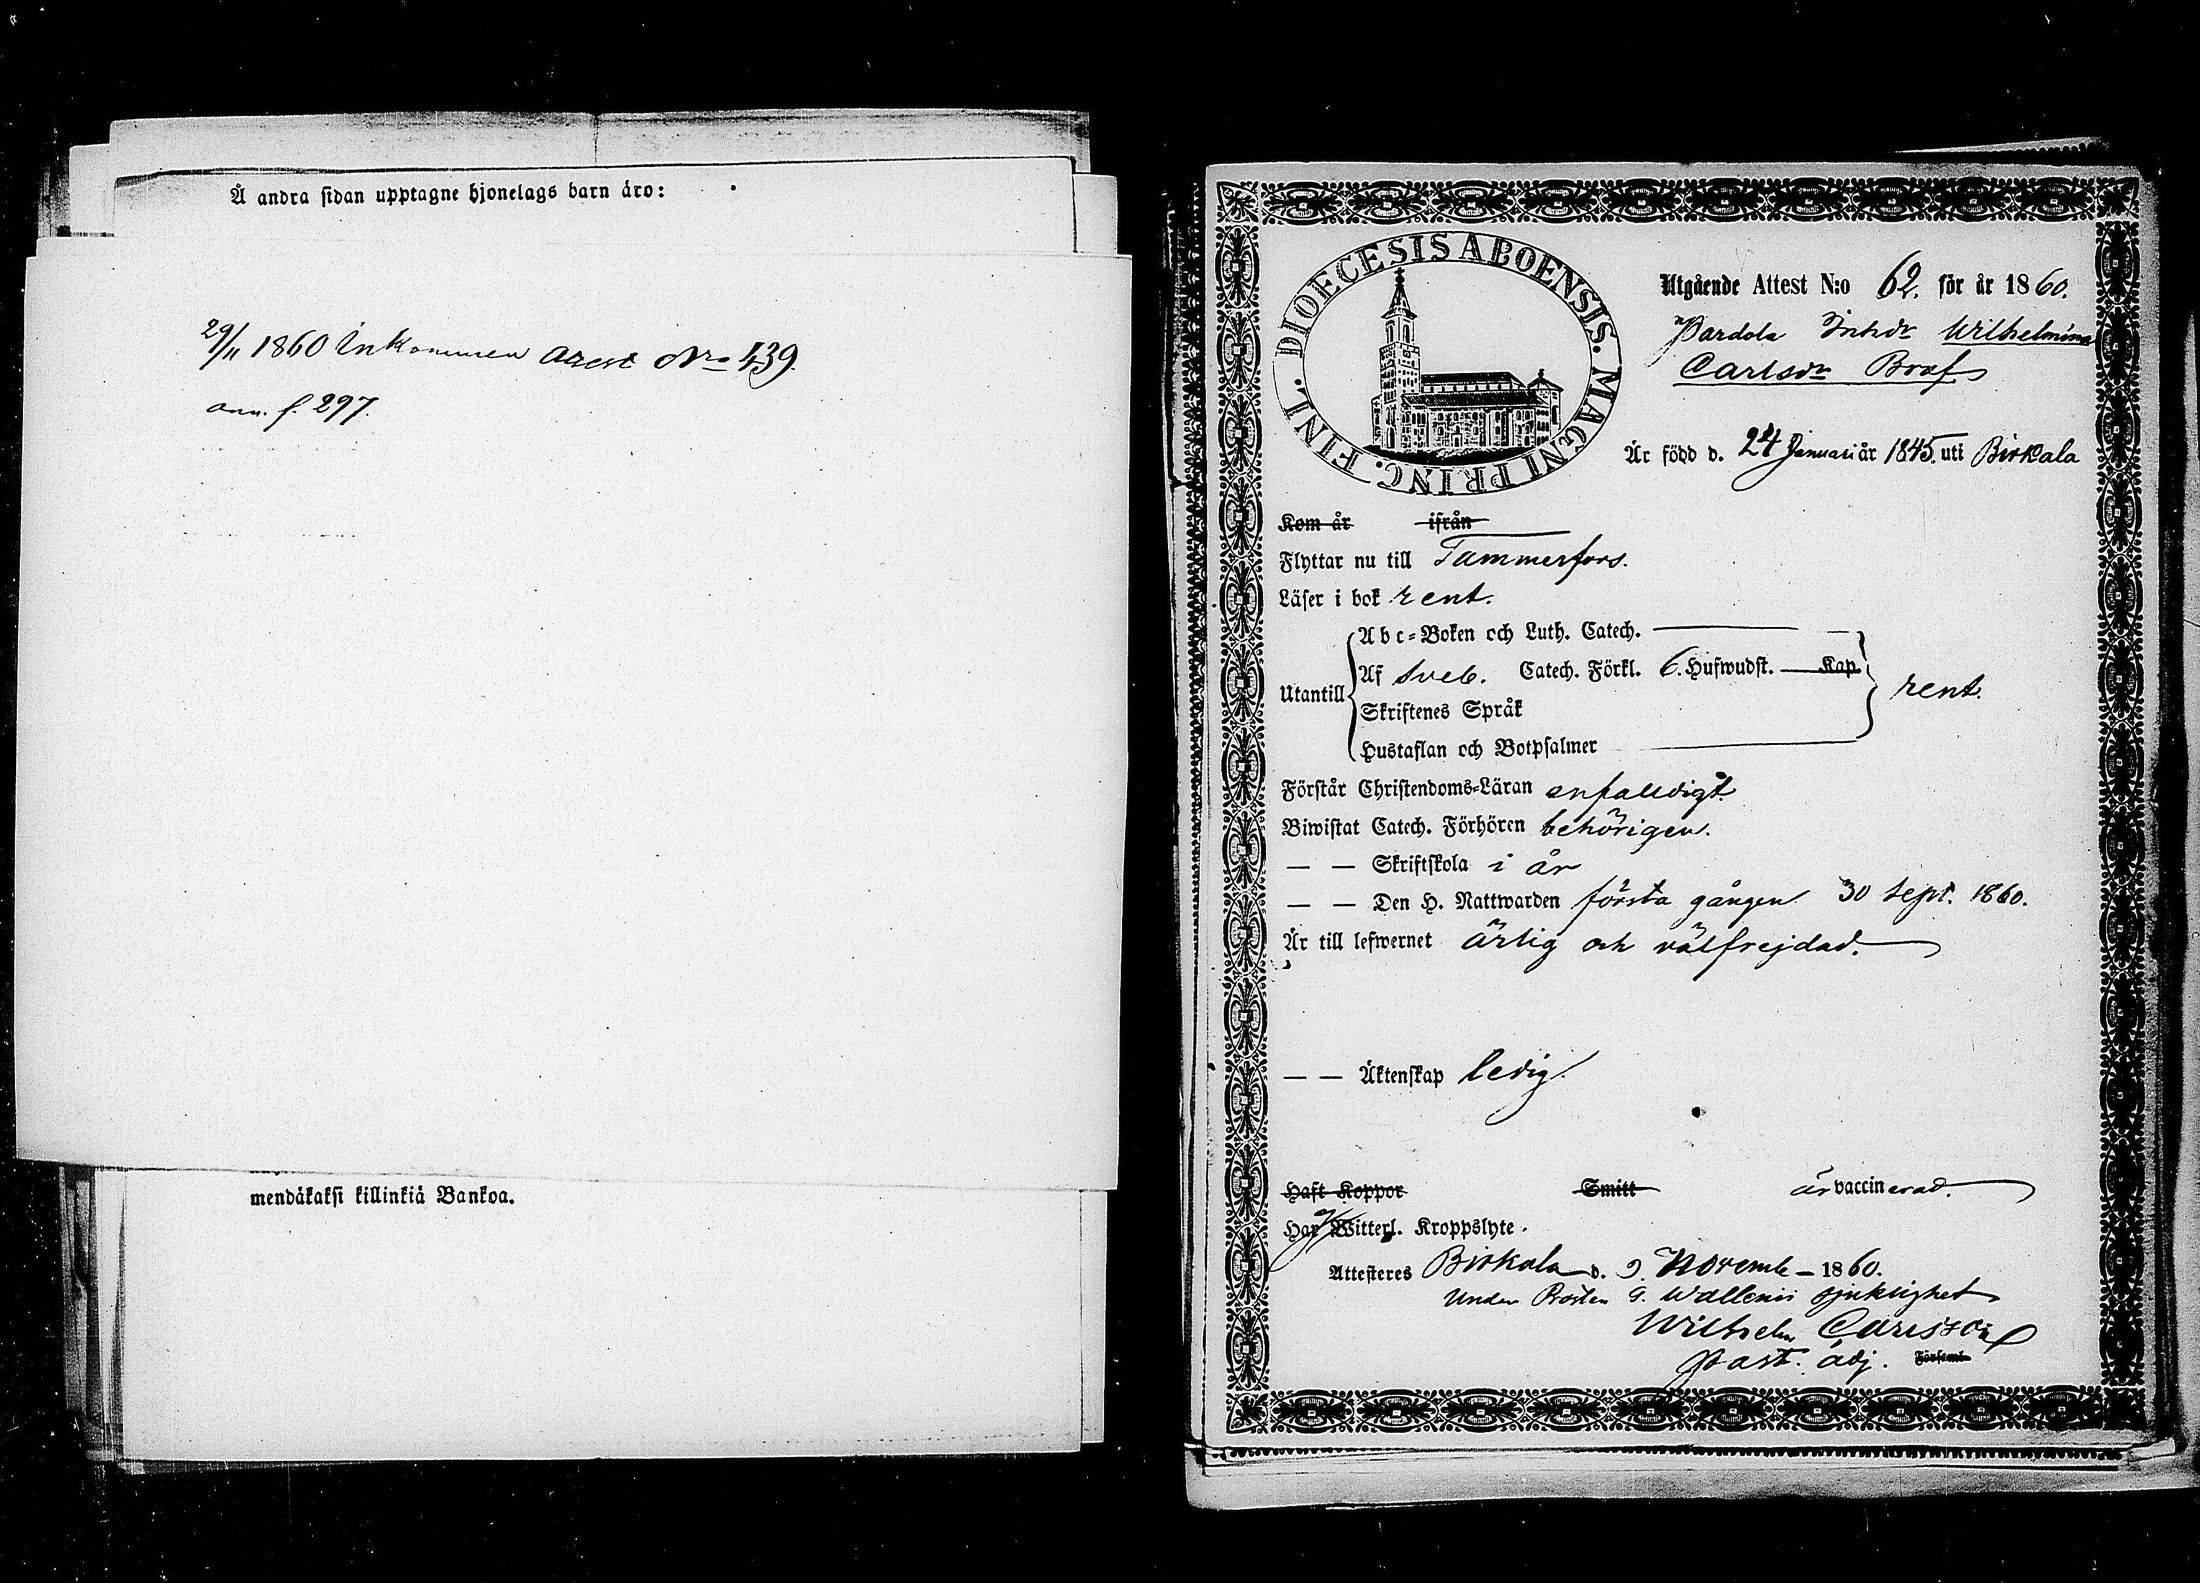 Å andra sidan upptagne hjonelags barn äro:
29/11 1860 Inkommen attest Nro 439.
ann. f. 297.
mendäkaksi killinkiä Bankoa.
DIOECESIS ABOENSIS. MAGNI PRINC. FINL.
Utgående Attest N:o 62. för år 1860.
Pardola Inhdr Wilhelmina
Carlsdr Braf
Är född d. 24 Januari år 1845. uti Birkala
Kom år ifrån
Flyttar nu till Tammerfors.
Läser i bok rent.
Abc-Boken och Luth. Catech.
Utantill
Af Sveb. Catech. Förkl. 6. Hufwudst. Kap.
rent.
Skriftenes Språk
Hustaflan och Botpsalmer
Förstår Christendoms-Läran enfaldigt.
Biwistat Catech. Förhören behörigen.
— — Skriftskola i år
— — Den H. Nattwarden första gången 30 Sept. 1860.
Är till lefwernet ärlig och välfrejdad.
— — Äktenskap ledig.
Haft Koppor Smitt är vaccinerad.
Har Witterl. Kroppslyte.
Attesteres Birkala d. 9 Novemb 1860.
Under Prosten G. Wallenii sjuklighet
Wilhelm Carlsson
Past. adj. Församl.